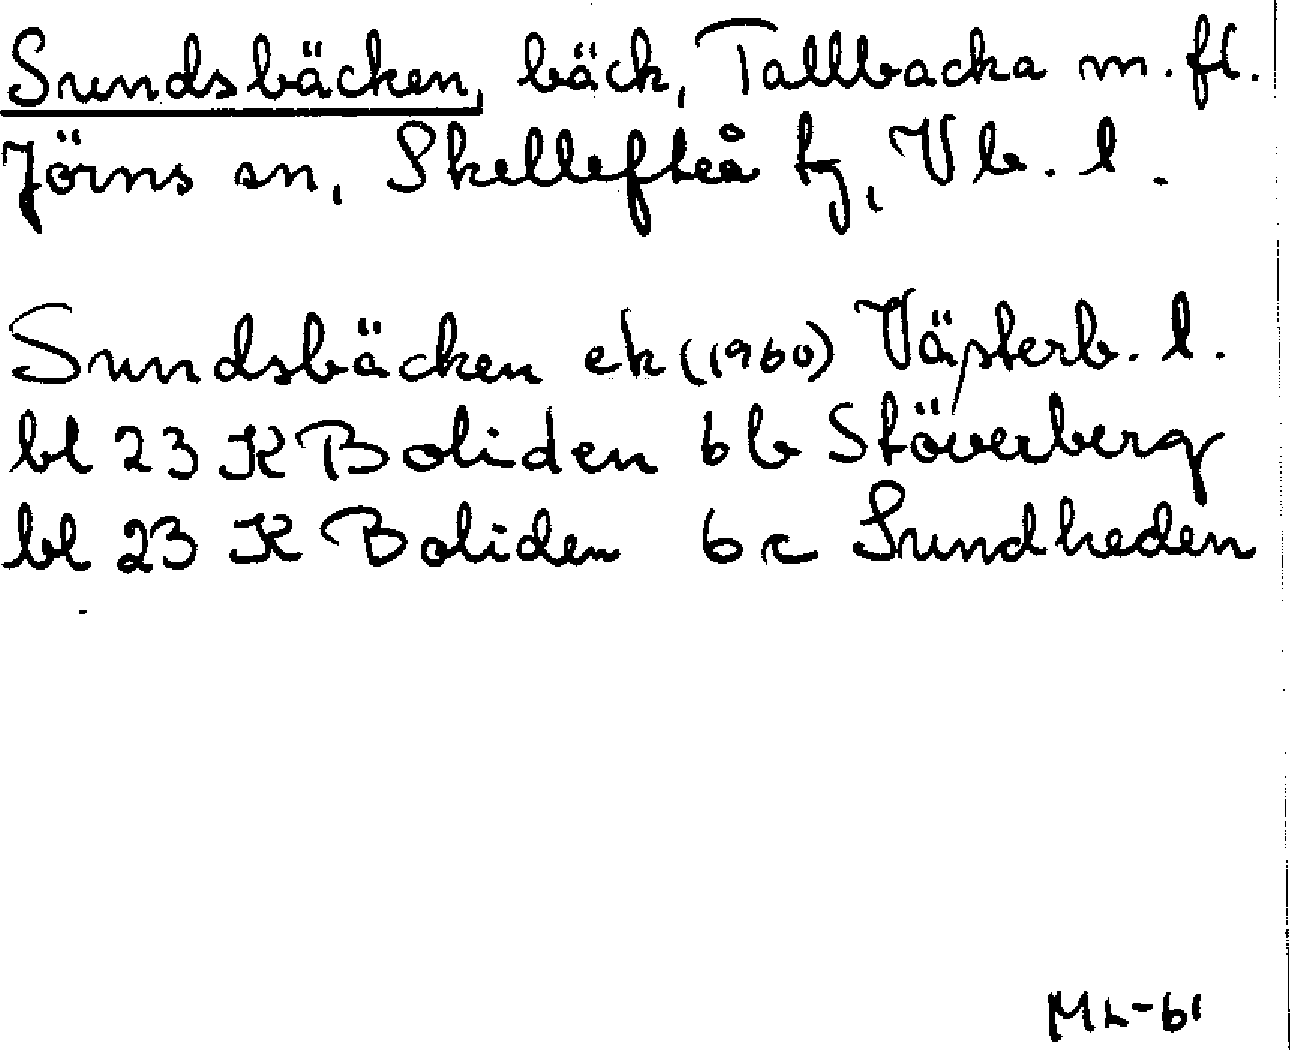 Sundsbäcken, bäck, Tallbacka m.fl.
Jörns sn, Skellefteå tg, Vb. l.
Sundsbäcken ek (1960) Västerb. l.
bl 23 K Boliden 6 b Stöverberg
bl 23 K Boliden 6 c Sundheden
ML-61